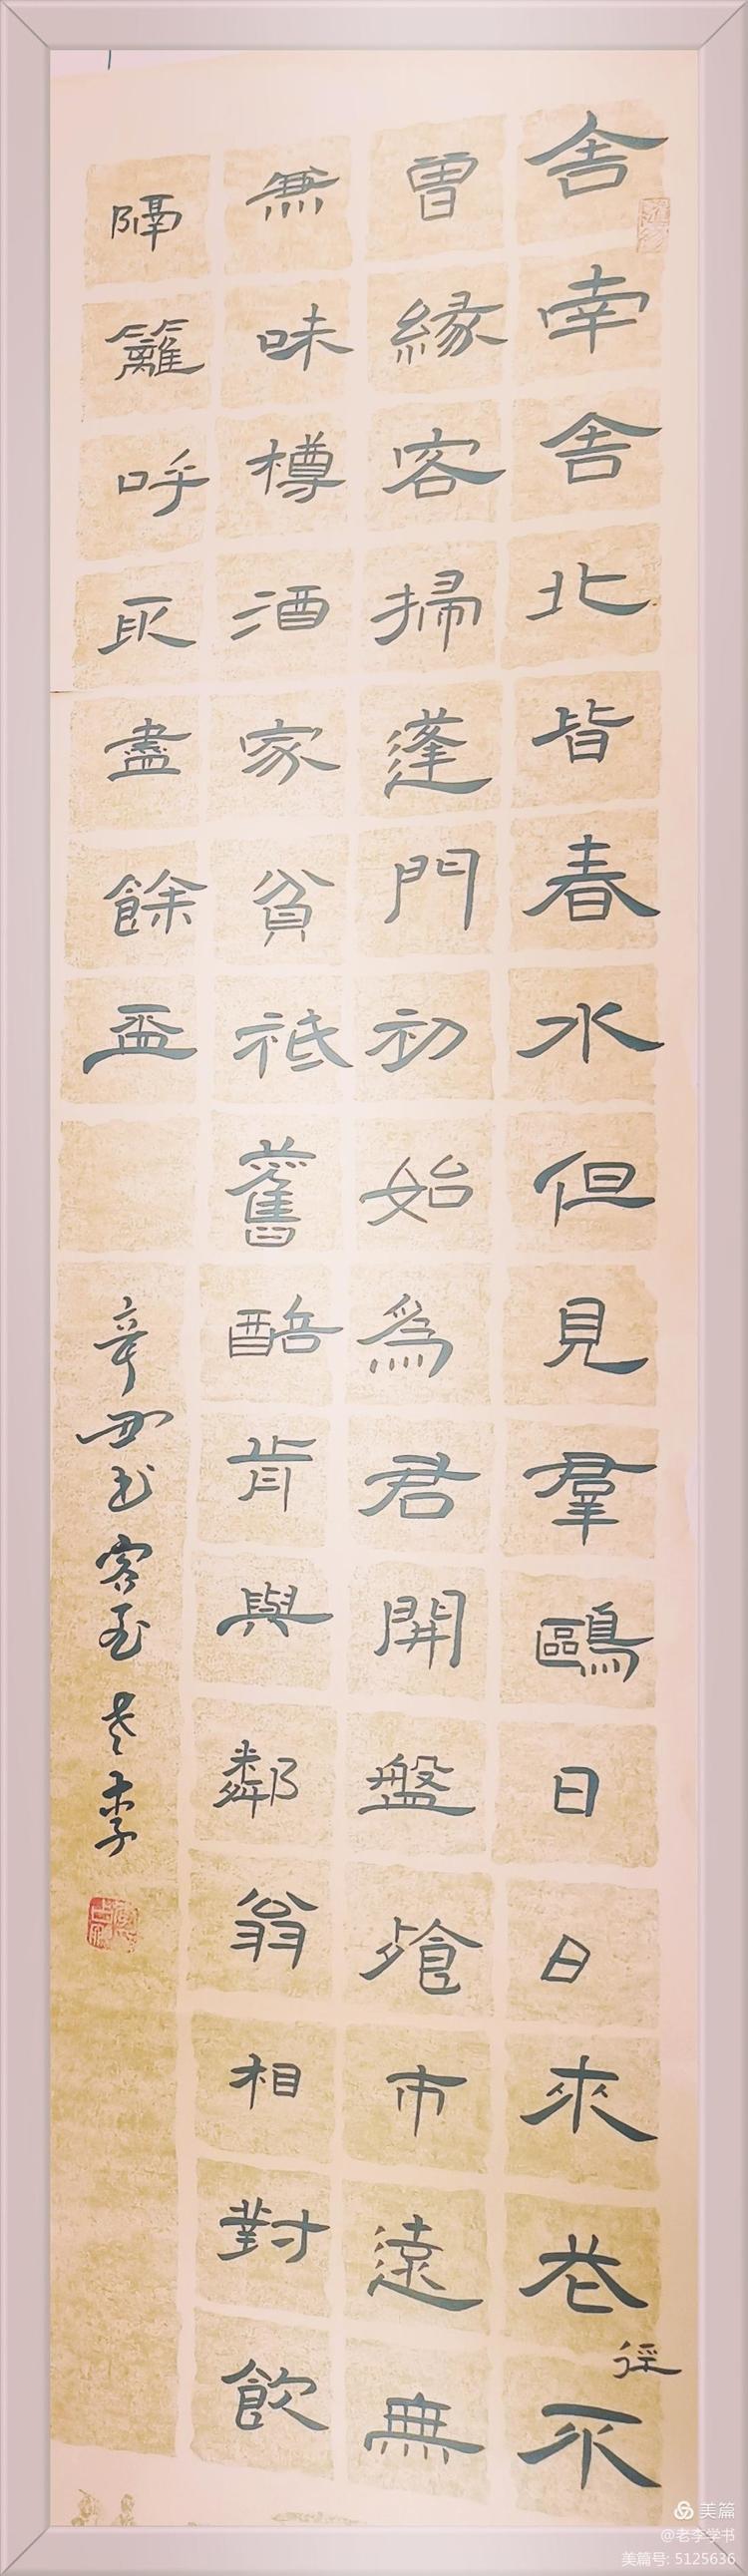 舍南舍北皆春水但見羣鷗日日來花徑不
曾緣客掃蓬門初始爲君開盤飧市遠無
兼味樽酒家貧祗舊醅肯與鄰翁相對飲
隔籬呼取盡餘盃
辛丑書客至老李
美篇
@老李学书
美篇号: 5125636